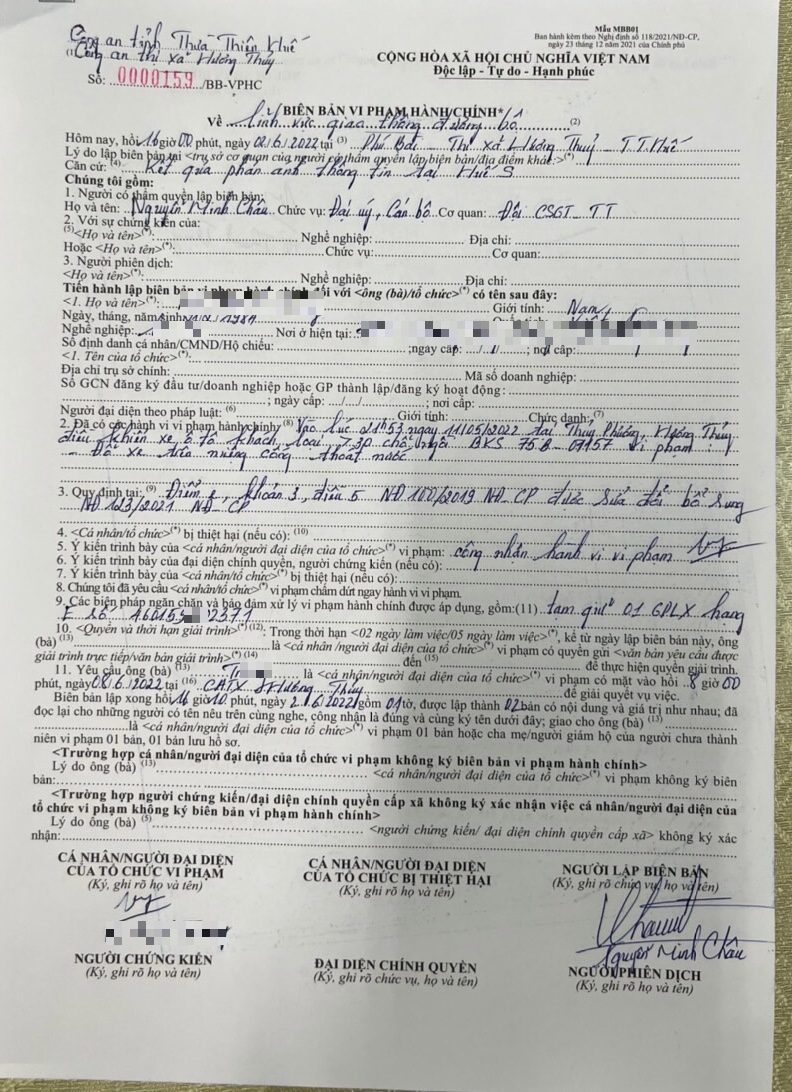 Mẫu MBB01
Ban hành kèm theo Nghị định số 118/2021/NĐ-CP,
ngày 23 tháng 12 năm 2021 của Chính phủ
Công an tỉnh Thừa Thiên Huế
(1) Công an thị xã Hương Thủy
Số: 0000159 /BB-VPHC
CỘNG HÒA XÃ HỘI CHỦ NGHĨA VIỆT NAM
Độc lập - Tự do - Hạnh phúc
BIÊN BẢN VI PHẠM HÀNH CHÍNH*
Về lĩnh vực giao thông đường bộ (2)
Hôm nay, hồi 16 giờ 00 phút, ngày 02/6/2022 tại (3) Phú Bài - Thị xã Hương Thuỷ - T.T.Huế
Lý do lập biên bản tại <trụ sở cơ quan của người có thẩm quyền lập biên bản/địa điểm khác>(*)
Căn cứ: (4) Kết quả phản ánh thông tin tại Huế S
Chúng tôi gồm:
1. Người có thẩm quyền lập biên bản:
Họ và tên: Nguyễn Minh Châu Chức vụ: Đại úy, Cán bộ Cơ quan: Đội CSGT-TT
2. Với sự chứng kiến của:
(5)<Họ và tên>(*): Nghề nghiệp: Địa chỉ:
Hoặc <Họ và tên>(*): Chức vụ: Cơ quan:
3. Người phiên dịch:
<Họ và tên>(*): Nghề nghiệp: Địa chỉ:
Tiến hành lập biên bản vi phạm hành chính đối với <ông (bà)/tổ chức>(*) có tên sau đây:
<1. Họ và tên>(*): Giới tính: Nam
Ngày, tháng, năm sinh
Nghề nghiệp: Nơi ở hiện tại:
Số định danh cá nhân/CMND/Hộ chiếu: ;ngày cấp: ; nơi cấp:
<1. Tên của tổ chức>(*):
Địa chỉ trụ sở chính: Mã số doanh nghiệp:
Số GCN đăng ký đầu tư/doanh nghiệp hoặc GP thành lập/đăng ký hoạt động:
; ngày cấp: ..../..../.... ; nơi cấp:
Người đại diện theo pháp luật: (6) Giới tính: Chức danh: (7)
2. Đã có các hành vi vi phạm hành chính: (8) Vào lúc 21h53 ngày 11/05/2022 tại Thủy Phương, Hương Thủy
điều khiển xe ô tô khách, loại chỗ ngồi BKS 75B-07157 vi phạm:
- Đỗ xe trên miệng cống thoát nước
3. Quy định tại: (9) Điểm khoản 3, điều 5 NĐ 100/2019 NĐ-CP được sửa đổi bổ sung
NĐ 123/2021 NĐ-CP
4. <Cá nhân/tổ chức>(*) bị thiệt hại (nếu có): (10)
5. Ý kiến trình bày của <cá nhân/người đại diện của tổ chức>(*) vi phạm: công nhận hành vi vi phạm
6. Ý kiến trình bày của đại diện chính quyền, người chứng kiến (nếu có):
7. Ý kiến trình bày của <cá nhân/tổ chức>(*) bị thiệt hại (nếu có):
8. Chúng tôi đã yêu cầu <cá nhân/tổ chức>(*) vi phạm chấm dứt ngay hành vi vi phạm.
9. Các biện pháp ngăn chặn và bảo đảm xử lý vi phạm hành chính được áp dụng, gồm:(11) tạm giữ 01 GPLX hạng
E số
10. <Quyền và thời hạn giải trình>(*)(12): Trong thời hạn <02 ngày làm việc/05 ngày làm việc>(*), kể từ ngày lập biên bản này, ông
(bà) (13) là <cá nhân/tổ chức>(*) vi phạm có quyền gửi <văn bản yêu cầu được
giải trình trực tiếp/văn bản giải trình>(*) (14) đến (15) để thực hiện quyền giải trình.
11. Yêu cầu ông (bà) (13) là <cá nhân/tổ chức>(*) vi phạm có mặt vào hồi 8 giờ 00
phút, ngày 08/6/2022 tại (16) CATX Hương Thủy để giải quyết vụ việc.
Biên bản lập xong hồi 16 giờ 10 phút, ngày 2/6/2022 gồm 01 tờ, được lập thành 02 bản có nội dung và giá trị như nhau; đã
đọc lại cho những người có tên nêu trên cùng nghe, công nhận là đúng và cùng ký tên dưới đây; giao cho ông (bà) (13)
là <cá nhân/tổ chức>(*) vi phạm 01 bản hoặc cha mẹ/người giám hộ của người chưa thành
niên vi phạm 01 bản, 01 bản lưu hồ sơ.
<Trường hợp cá nhân/người đại diện của tổ chức vi phạm không ký biên bản vi phạm hành chính>
Lý do ông (bà) (13) <cá nhân/người đại diện của tổ chức>(*) vi phạm không ký biên
bản:
<Trường hợp người chứng kiến/đại diện chính quyền cấp xã không ký xác nhận việc cá nhân/người đại diện của
tổ chức vi phạm không ký biên bản vi phạm hành chính>
Lý do ông (bà) (5) <người chứng kiến/ đại diện chính quyền cấp xã> không ký xác
nhận:
CÁ NHÂN/NGƯỜI ĐẠI DIỆN
CỦA TỔ CHỨC VI PHẠM
(Ký, ghi rõ họ và tên)
CÁ NHÂN/NGƯỜI ĐẠI DIỆN
CỦA TỔ CHỨC BỊ THIỆT HẠI
(Ký, ghi rõ họ và tên)
NGƯỜI LẬP BIÊN BẢN
(Ký, ghi rõ chức vụ, họ và tên)
Nguyễn Minh Châu
NGƯỜI CHỨNG KIẾN
(Ký, ghi rõ họ và tên)
ĐẠI DIỆN CHÍNH QUYỀN
(Ký, ghi rõ chức vụ, họ và tên)
NGƯỜI PHIÊN DỊCH
(Ký, ghi rõ họ và tên)